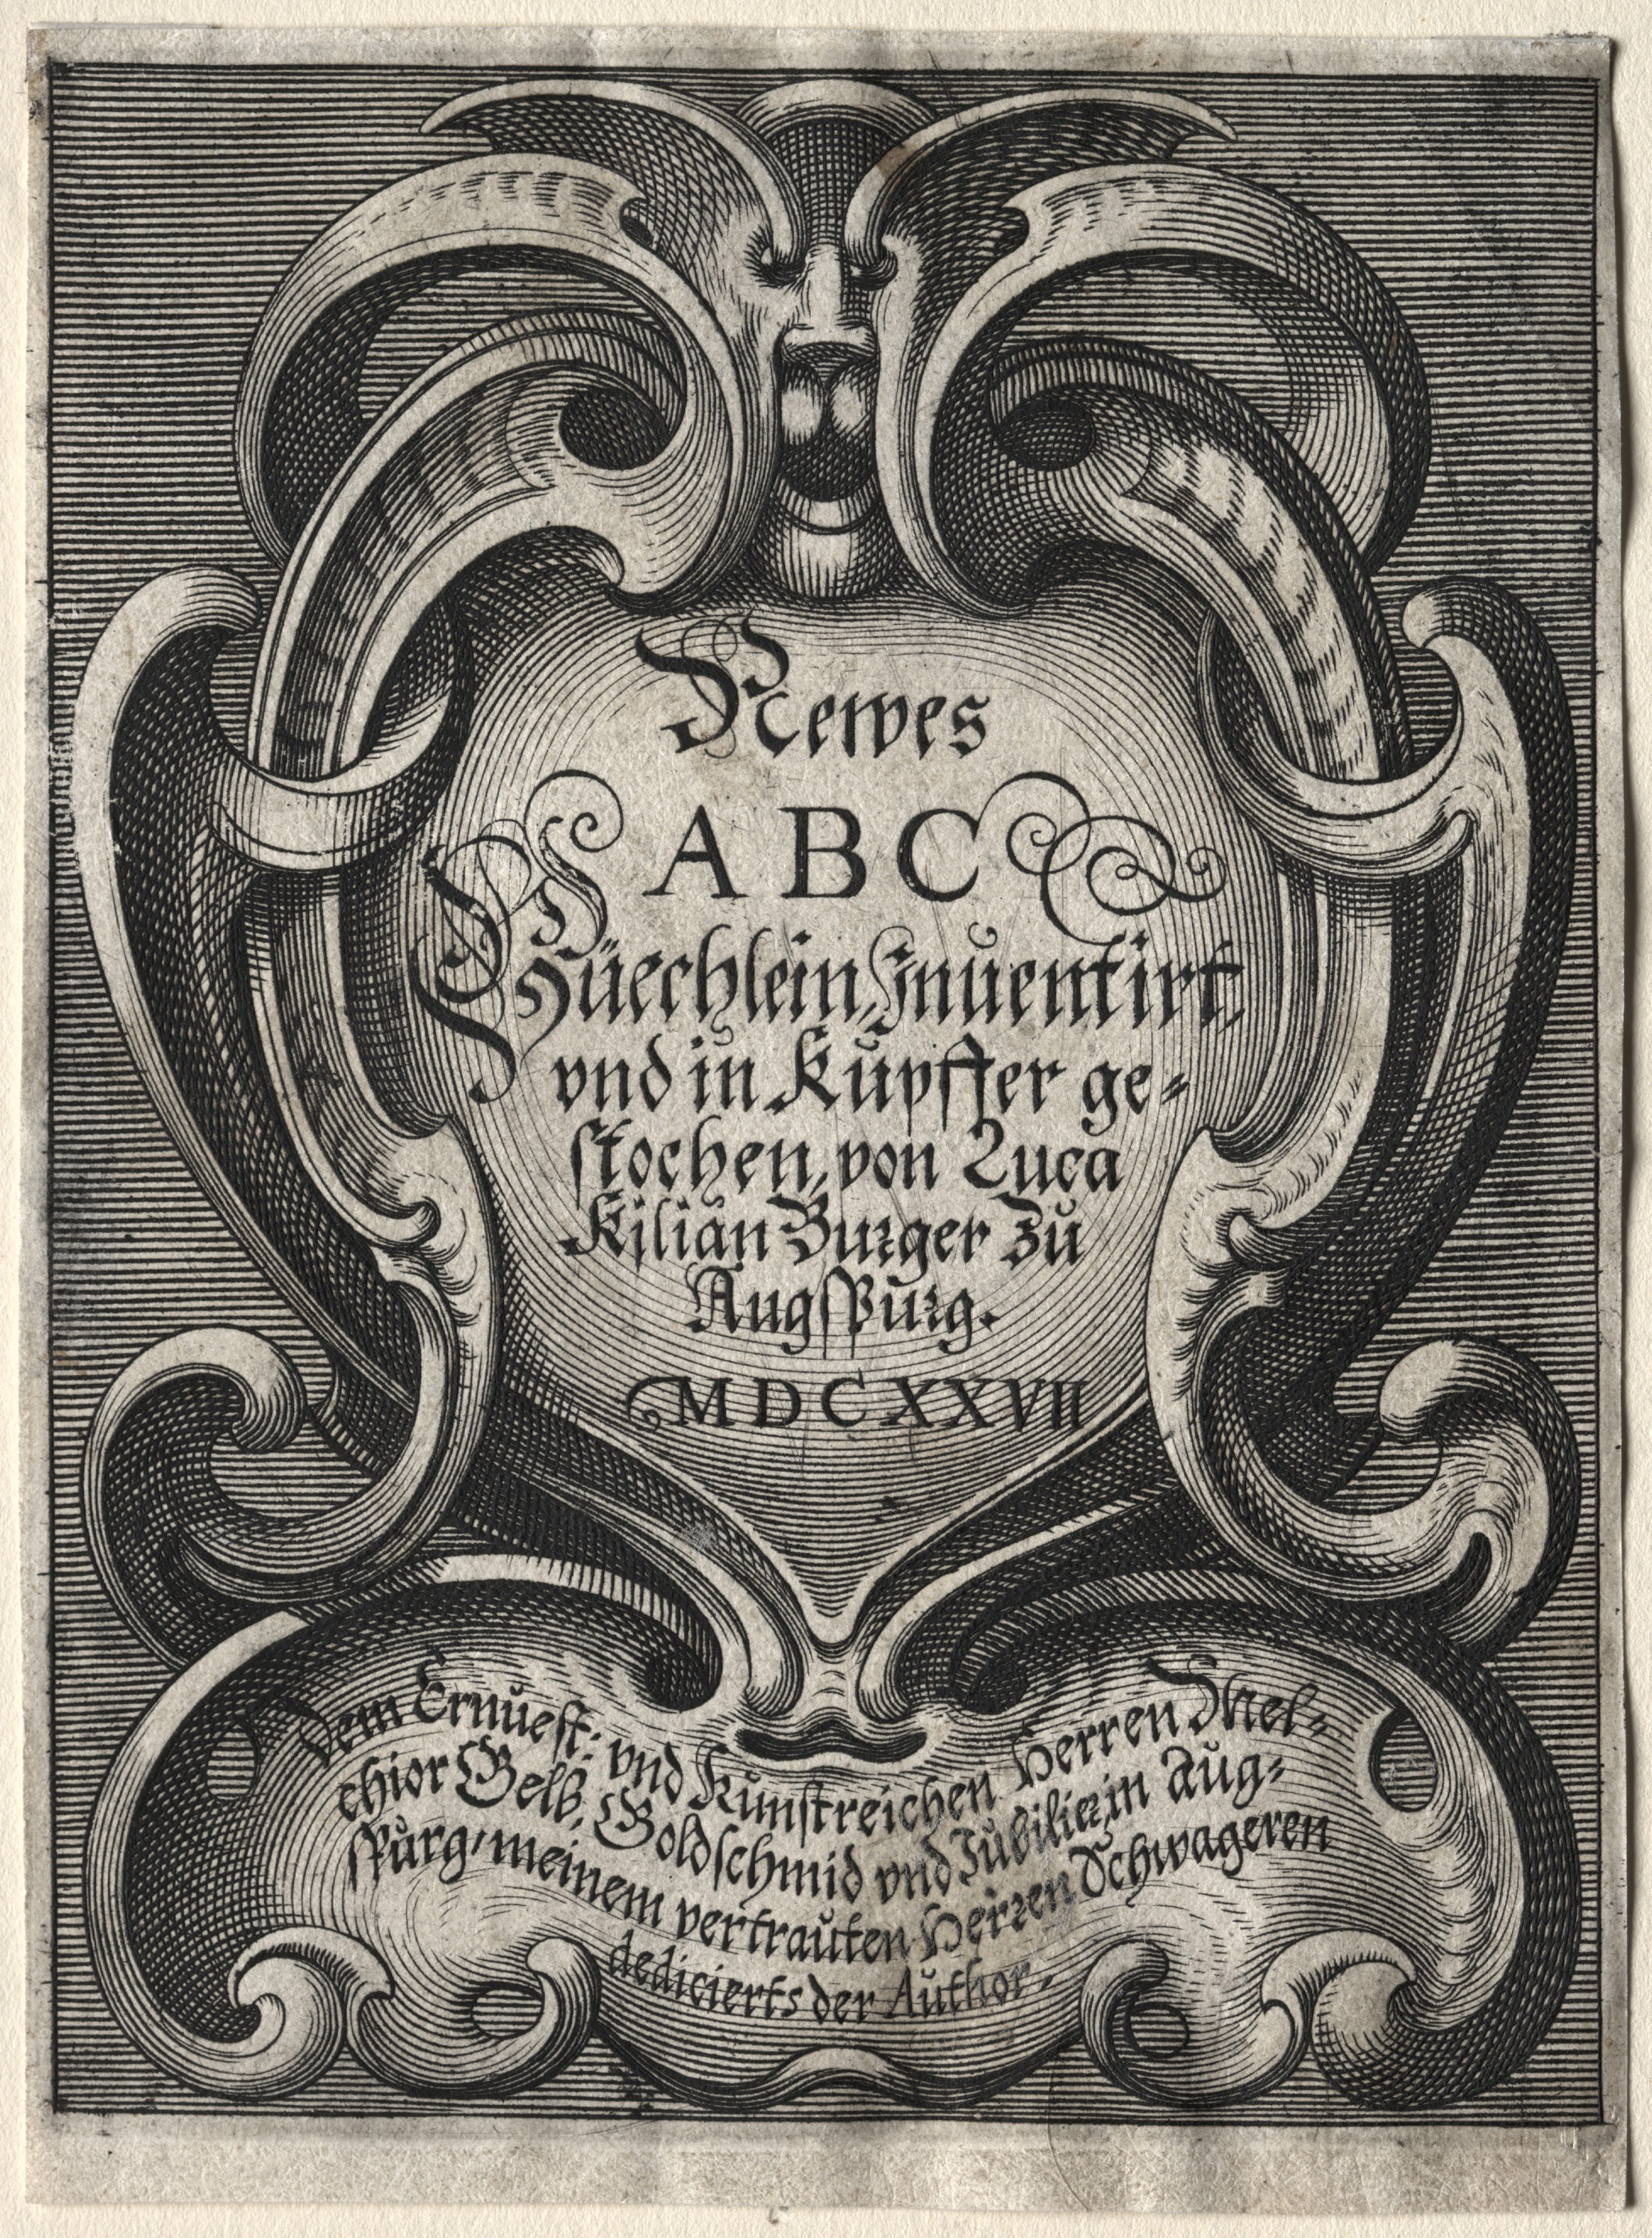 Newes
ABC
Büechlein, Inuentirt,
vnd in Kupffer ge⸗
stochen, von Luca
Kilian Burger zu
Augspurg.
MDCXXVII
Dem Ernuest: vnd Kunstreichen Herren Mel⸗
chior Gelb, Goldschmid vnd Iubilier in Aug⸗
spurg, meinem vertrauten Herren Schwageren
dedicierts der Author.